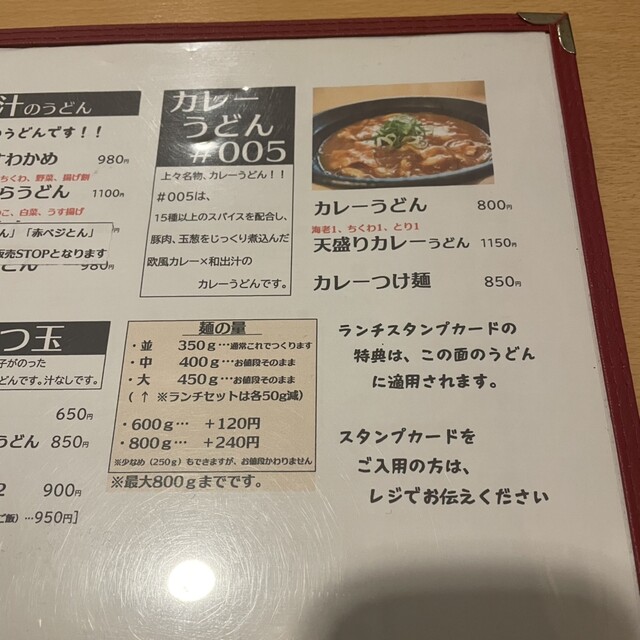 汁のうどん
うどんです！！
わかめ 980円
ちくわ、野菜、揚げ餅
らうどん 1100円
こ、白菜、うす揚げ
ん」「赤ベジとん」
販売STOPとなります
どん 980円
つ玉
子がのった
どんです。汁なしです。
650円
うどん 850円
2 900円
ご飯)…950円]
カレー
うどん
#005
上々名物、カレーうどん！！
#005は、
15種以上のスパイスを配合し、
豚肉、玉葱をじっくり煮込んだ
欧風カレー×和出汁の
カレーうどんです。
麺の量
・並 350g…通常これでつくります
・中 400g…お値段そのまま
・大 450g…お値段そのまま
(↑ ※ランチセットは各50g減)
・600g… +120円
・800g… +240円
※少なめ(250g)もできますが、お値段かわりません
※最大800gまでです。
カレーうどん 800円
海老1、ちくわ1、とり1
天盛りカレーうどん 1150円
カレーつけ麺 850円
ランチスタンプカードの
特典は、この面のうどん
に適用されます。
スタンプカードを
ご入用の方は、
レジでお伝えください